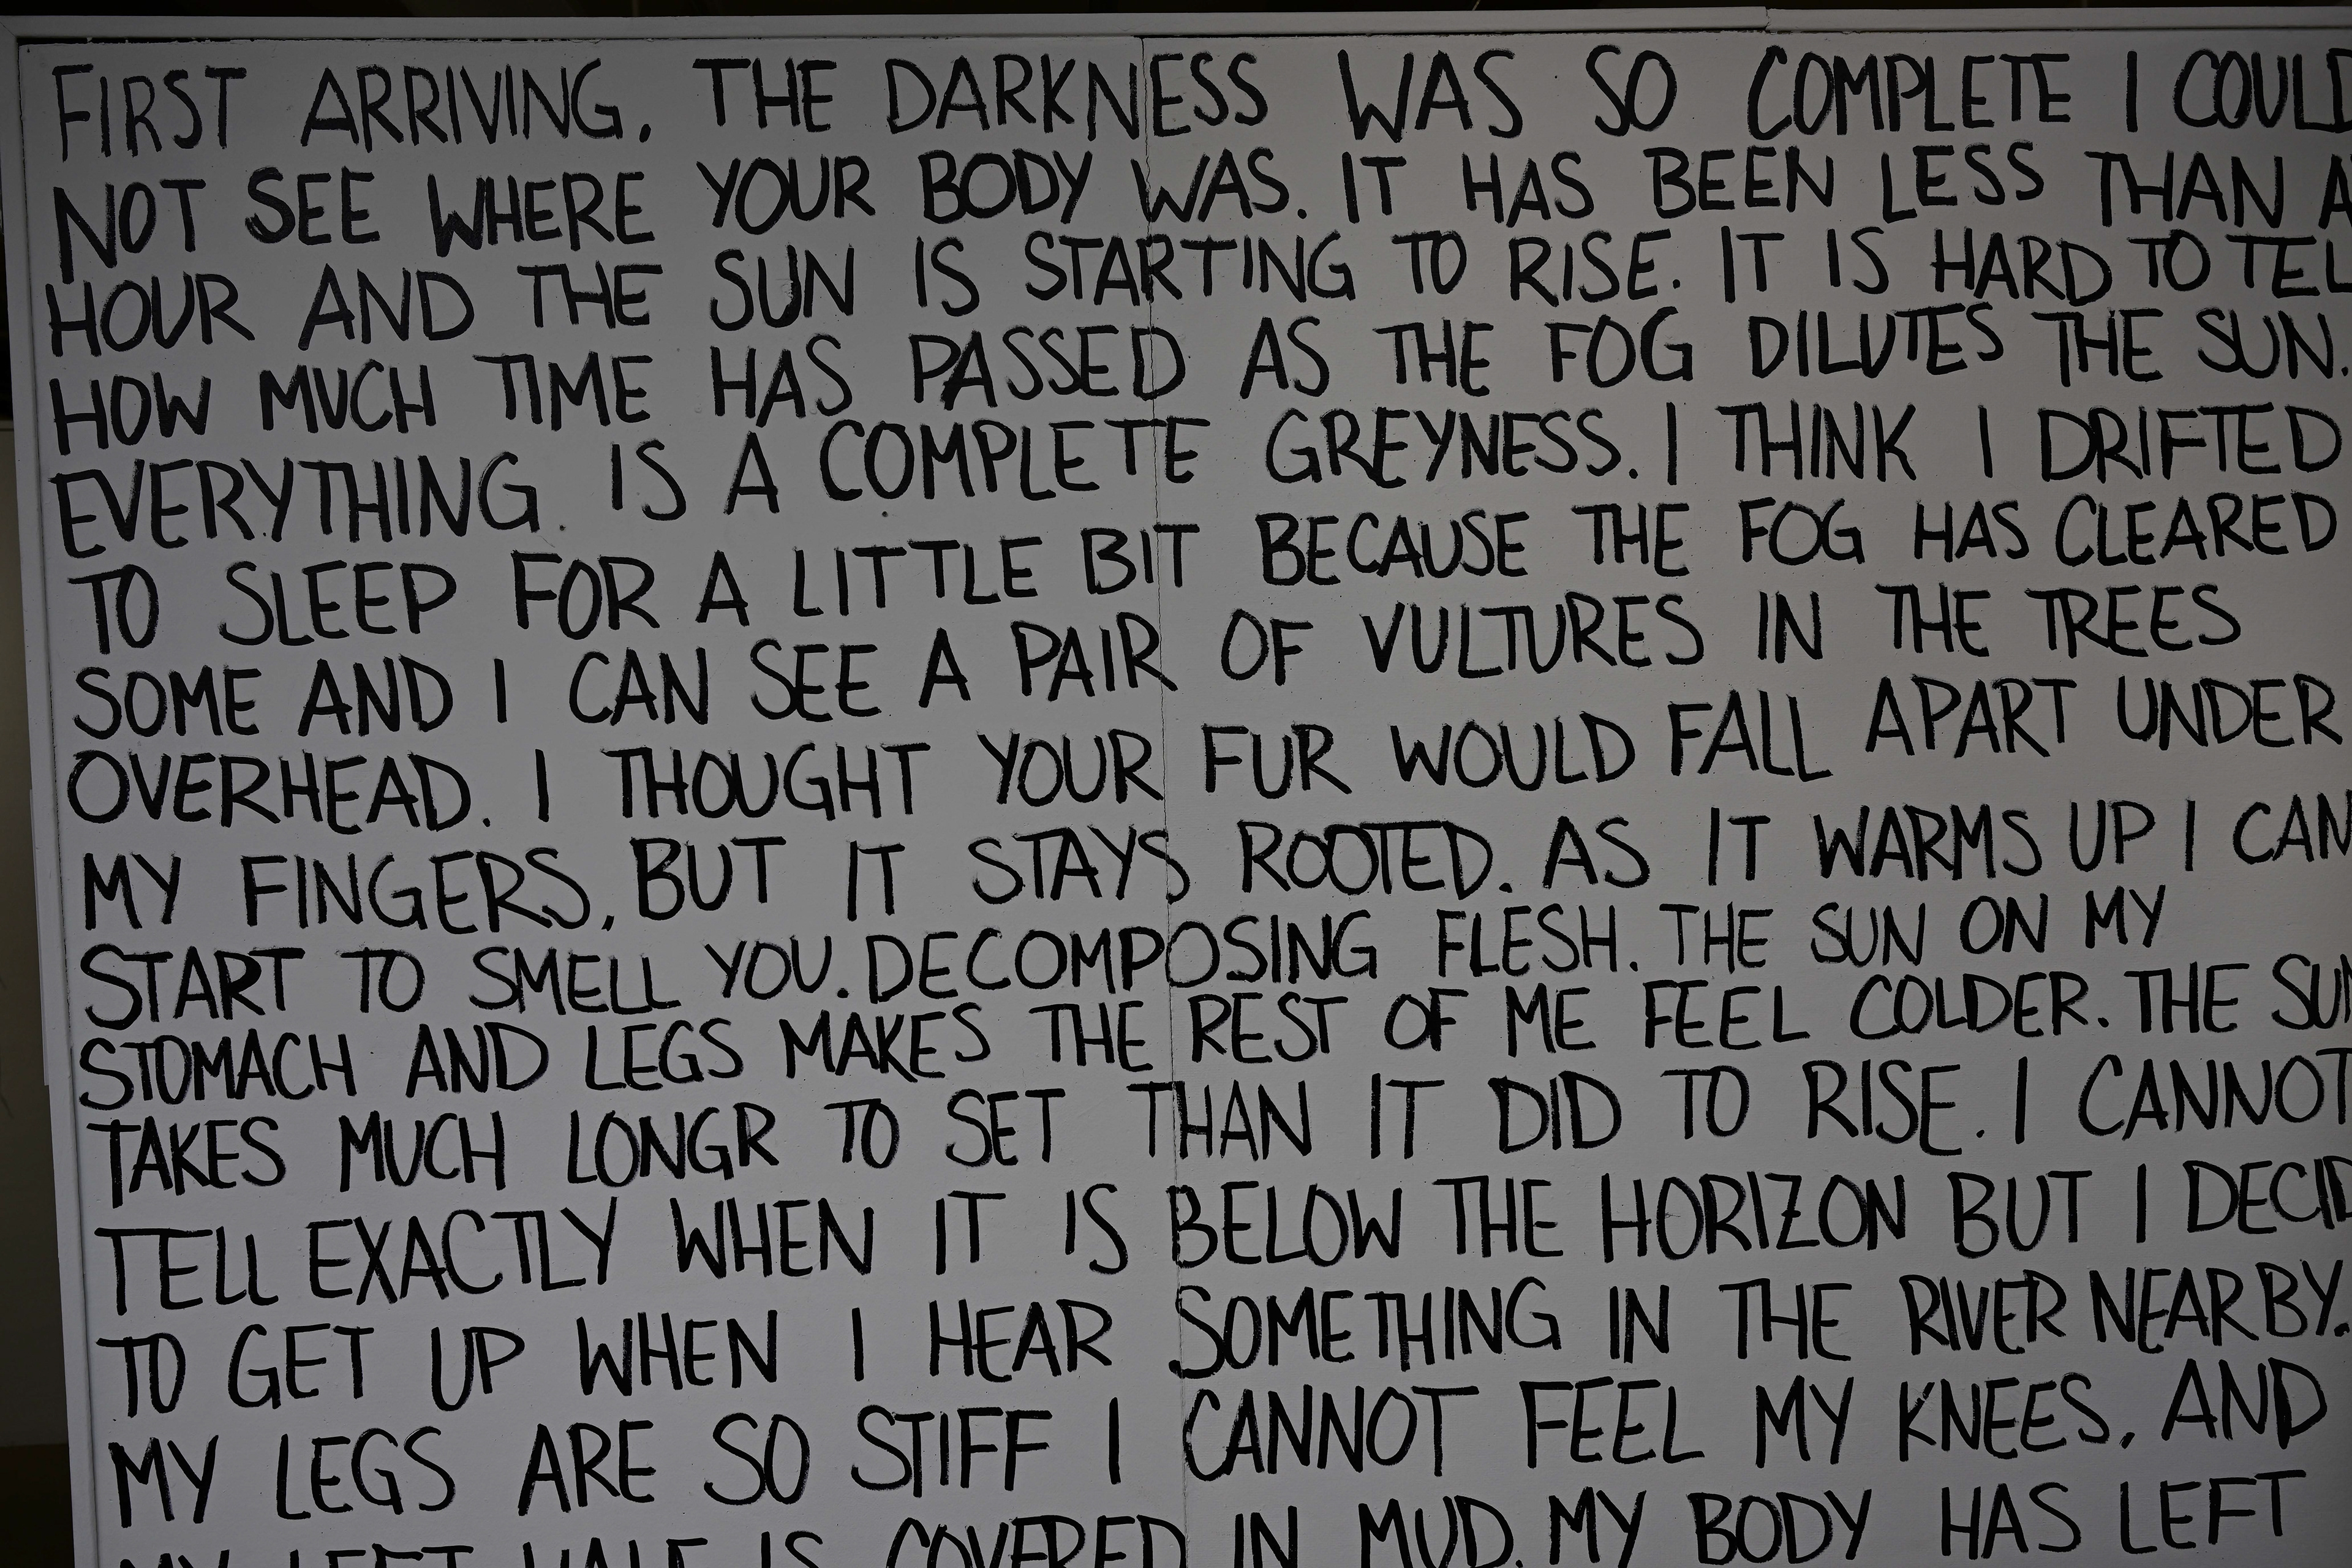 FIRST ARRIVING, THE DARKNESS WAS SO COMPLETE I COULD
NOT SEE WHERE YOUR BODY WAS. IT HAS BEEN LESS THAN A
HOUR AND THE SUN IS STARTING TO RISE. IT IS HARD TO TEL
HOW MUCH TIME HAS PASSED AS THE FOG DILUTES THE SUN.
EVERYTHING IS A COMPLETE GREYNESS. I THINK I DRIFTED
TO SLEEP FOR A LITTLE BIT BECAUSE THE FOG HAS CLEARED
SOME AND I CAN SEE A PAIR OF VULTURES IN THE TREES
OVERHEAD. I THOUGHT YOUR FUR WOULD FALL APART UNDER
MY FINGERS, BUT IT STAYS ROOTED. AS IT WARMS UP I CAN
START TO SMELL YOU. DECOMPOSING FLESH. THE SUN ON MY
STOMACH AND LEGS MAKES THE REST OF ME FEEL COLDER. THE SUN
TAKES MUCH LONGR TO SET THAN IT DID TO RISE. I CANNOT
TELL EXACTLY WHEN IT IS BELOW THE HORIZON BUT I DECID
TO GET UP WHEN I HEAR SOMETHING IN THE RIVER NEARBY.
MY LEGS ARE SO STIFF I CANNOT FEEL MY KNEES, AND
MY LEFT HALF IS COVERED IN MUD. MY BODY HAS LEFT